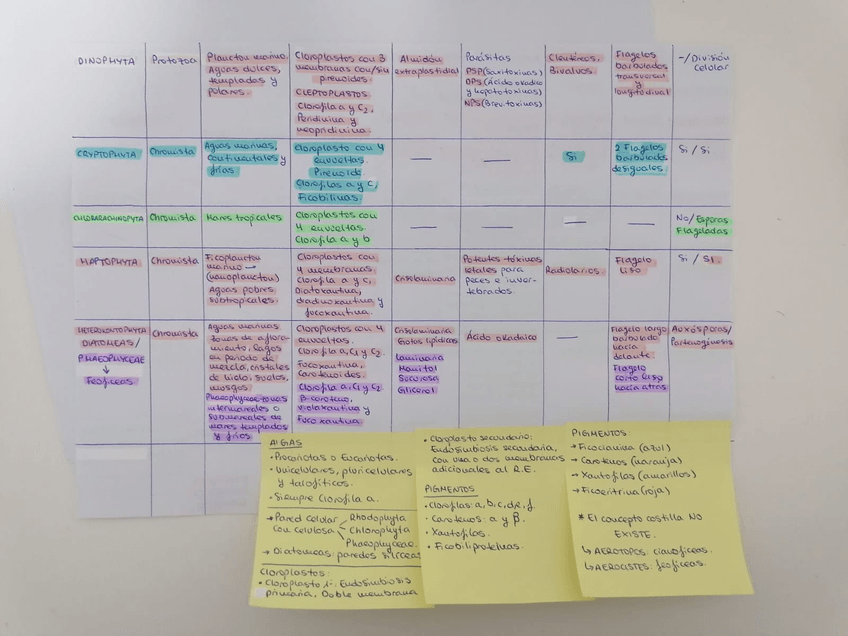 DINOPHYTA
Protozoa
Plancton marino.
Aguas dulces,
templadas y
polares.
Cloroplastos con 3
membranas con/sin
pirenoides.
CLEPTOPLASTOS
Clorofila a y C2,
Peridinina y
neopridinina.
Almidón
extraplastidial
Parásitas
PSP (Saxitoxinas)
DPS (Ácido okadaico
y hepatotoxinas)
NPS (Brevitoxinas)
Cleutineos.
Bivalvos.
Flagelos
barbulados
transversal
y
longitudinal
-/División
Celular
CRYPTOPHYTA
Chromista
Aguas marinas,
continentales y
frías
Cloroplasto con 4
envueltas.
Pirenoide
Clorofilas a y C,
Ficobilinas
—
—
Si
2 Flagelos
barbulados
desiguales
Si / Si
CHLORARACHNIOPYTA
Chromista
Mares tropicales
Cloroplastos con
4 envueltas.
Clorofila a y b
—
—
—
—
No/Esporas
Flageladas
HAPTOPHYTA
Chromista
Ficoplancton
marino →
(nanoplancton)
Aguas pobres
subtropicales.
Cloroplastos con
4 membranas.
Clorofila a y c,
Diatoxantina,
diadinoxantina y
fucoxantina.
Crisolaminarina
Potentes tóxinas
letales para
peces e inver-
tebrados.
Radiolarios.
Flagelo
liso
Si / SI.
HETEROKONTOPHYTA
DIATOMEAS/
PHAEOPHYCEAE
↓
Feofíceas
Chromista
Aguas marinas
zonas de aflora-
miento, lagos
en periodo de
mezcla, cristales
de hielo, suelos,
musgos.
Phaeophyceae: zonas
intermareales o
submareales de
mares templados
y fríos
Cloroplastos con 4
envueltas.
Clorofila a, C1 y C2.
Fucoxantina,
Carotenoides.
Clorofila a, C1 y C2
B-caroteno,
violaxantina y
Fucoxantina
Crisolaminaria
Gotas lipídicas
Laminaria
Manitol
Sucrosa
Glicerol
Ácido okadaico
—
Flagelo largo
barbulado
hacia
delante.
Flagelo
corto liso
hacia atrás
Auxósporas/
Partenogénesis
ALGAS
• Procariotas o Eucariotas.
• Unicelulares, pluricelulares
y talofíticos.
• Siempre Clorofila a.
→ Pared celular
con celulosa
Rhodophyta
Chlorophyta
Phaeophyceae.
→ Diatomeas: paredes silíceas
Cloroplastos:
• Cloroplasto 1º: Endosimbiosis
primaria, Doble membrana
• Cloroplasto secundario:
Endosimbiosis secundaria,
con una o dos membranas
adicionales al R.E.
PIGMENTOS
• Clorofilas: a, b, c, d, e, f.
• Carotenos: α y β.
• Xantofilas.
• Ficobiliproteínas.
PIGMENTOS.
→ Ficocianina (azul)
→ Carotenos (naranja)
→ Xantofilas (amarillos)
→ Ficoeritrina (roja)
* El concepto costilla NO
EXISTE.
↳ AEROTOPOS: cianofíceas.
↳ AEROCISTES: feofíceas.